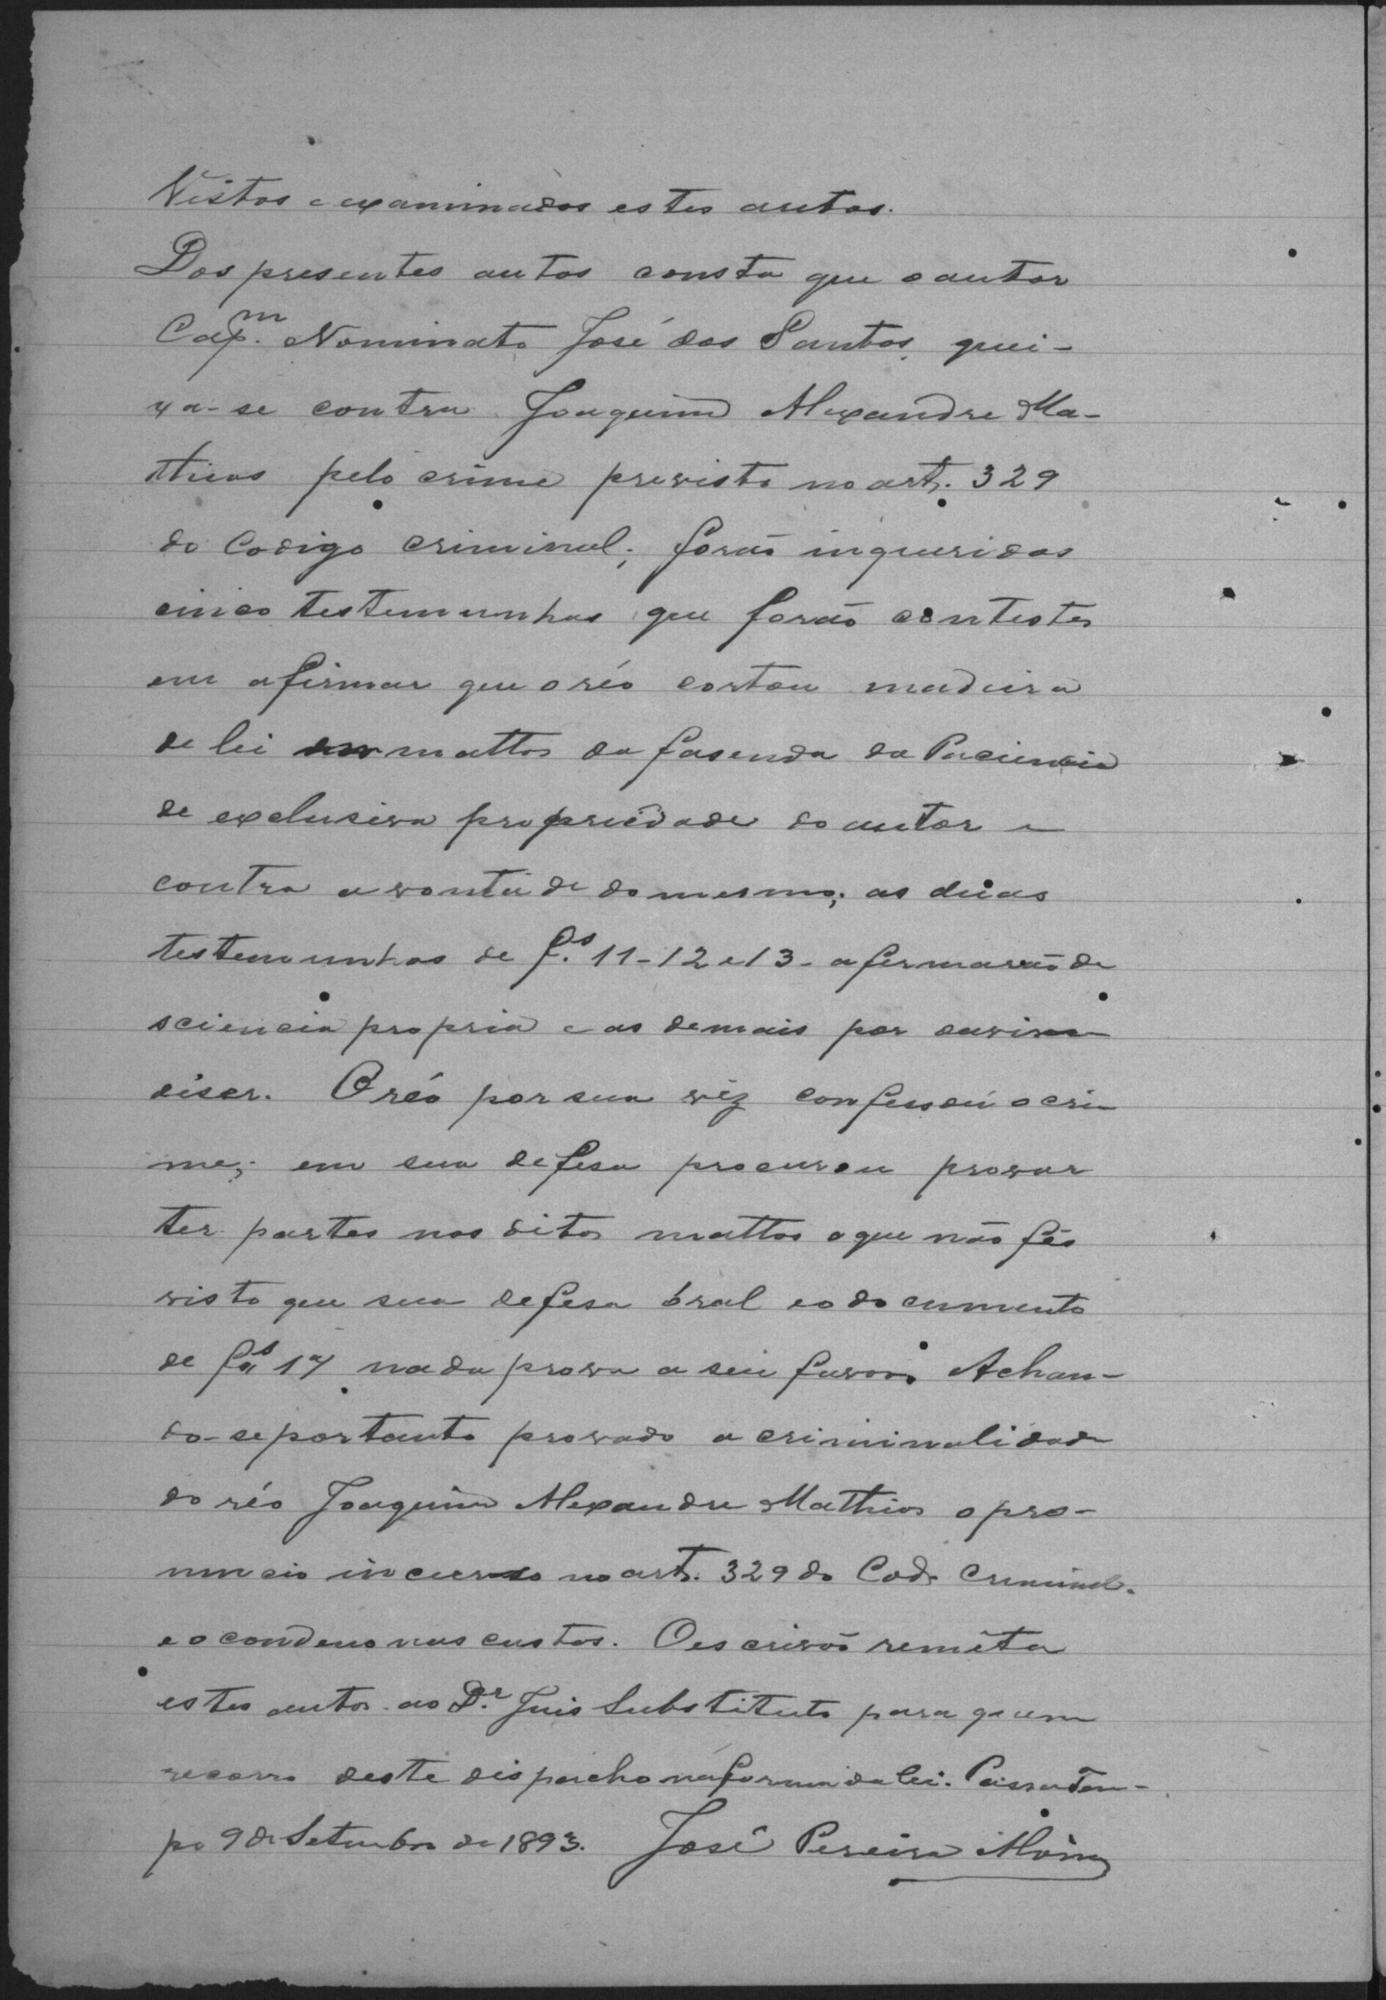 Vistos e examinados estes autos.
Dos presentes autos consta que o autor
Cap.m Nominato José dos Santos, quei-
xa-se contra Joaquim Alexandre Ma-
thias pelo crime previsto no art. 329
do Codigo criminal; forão inqueridas
cinco testemunhas que forão contestes
em afirmar que o réo cortou madeira
de lei em mattos da fasenda da Paciencia
de exclusiva propriedade do autor e
contra a vontade do mesmo; as duas
testemunhas de f.s 11-12 e 13 - afirmarão de
sciencia propria e as demais por ouvirem
diser. O réo por sua vêz confessou o cri-
me; em sua defesa procurou provar
ter partes nos ditos mattos o que não fês
visto que sua defesa óral e o documento
de fas 17 nada prova a seu favor. Achan-
do-se portanto provado a criminalidade
do réo Joaquim Alexandre Mathias o pro-
nuncio incurso no art. 329 do Cod. Criminal.
e o condeno nas custas. O escrivão remêta
estes autos ao D.r Juis Substituto para quem
recorro deste dispacho na forma da lei. Passa Tem-
po 9 de Setembro de 1893. José Pereira